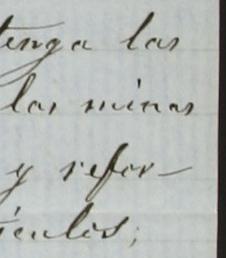 tenga las
las minas
y refor-
ticulos;